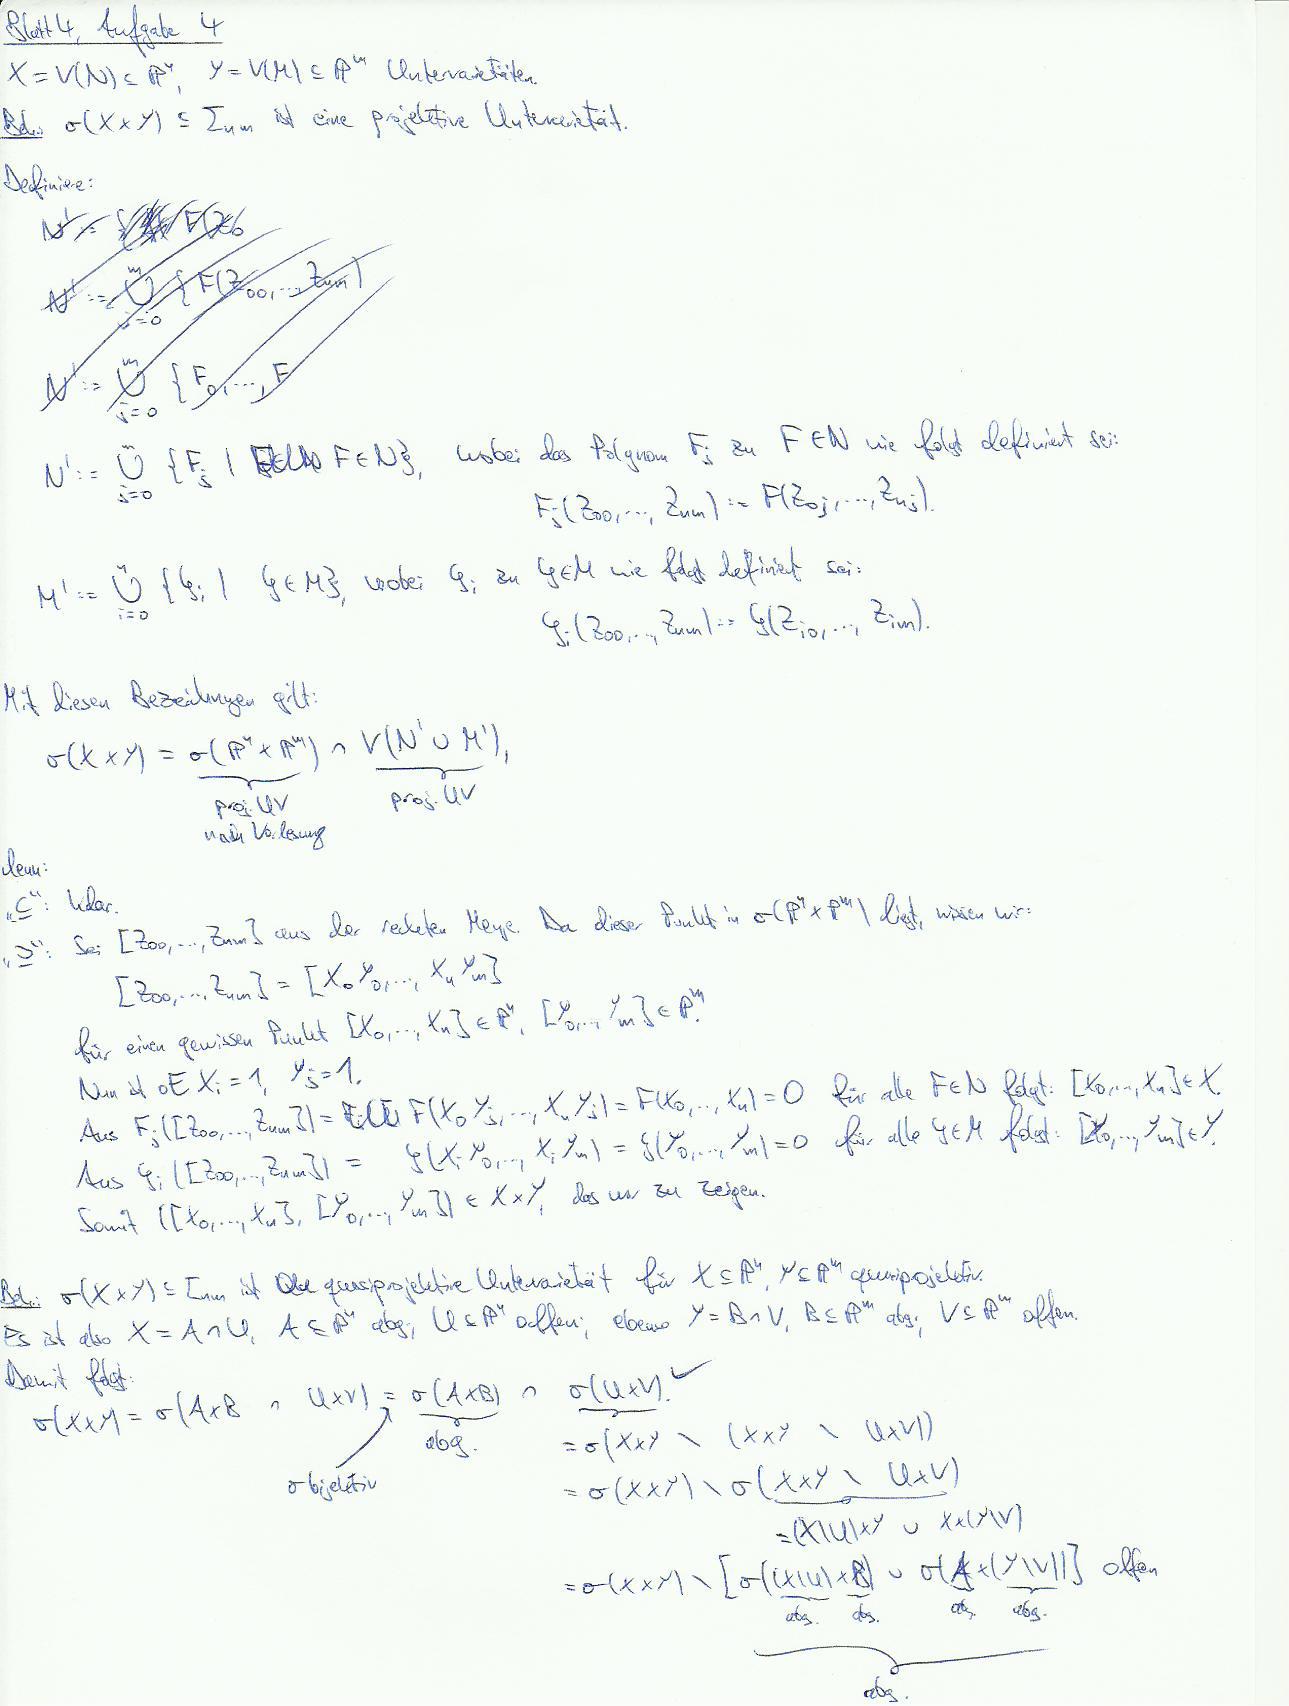 Blatt 4, Aufgabe 4
X = V(N) ⊆ ℙⁿ, Y = V(M) ⊆ ℙᵐ Untervarietäten.
Beh.: σ(X×Y) ⊆ Σₙₘ ist eine projektive Untervarietät.
Definiere:
N' := { F(Z₀
N' := ⋃_{j=0}^m { F(Z₀₀,..., Zₙₘ)
N' := ⋃_{j=0}^m { F₀,..., F
N' := ⋃_{j=0}^m { F_j | F∈N }, wobei das Polynom F_j zu F∈N wie folgt definiert sei:
F_j(Z₀₀,..., Zₙₘ) := F(Z₀j,..., Zₙj).
M' := ⋃_{i=0}^n { G_i | G∈M }, wobei G_i zu G∈M wie folgt definiert sei:
G_i(Z₀₀,..., Zₙₘ) := G(Z_i0,..., Z_im).
Mit diesen Bezeichnungen gilt:
σ(X×Y) = σ(ℙⁿ×ℙᵐ) ∩ V(N' ∪ M'),
proj. UV proj. UV
nach Vorlesung
denn:
„⊆": klar.
„⊇": Sei [Z₀₀,..., Zₙₘ] aus der rechten Menge. Da dieser Punkt in σ(ℙⁿ×ℙᵐ) liegt, wissen wir:
[Z₀₀,..., Zₙₘ] = [X₀Y₀,..., XₙYₘ]
für einen gewissen Punkt [X₀,..., Xₙ] ∈ ℙⁿ, [Y₀,..., Yₘ] ∈ ℙᵐ.
Nun ist oE X_i = 1, Y_j = 1.
Aus F_j([Z₀₀,..., Zₙₘ]) = F(X₀Y_j,..., XₙY_j) = F(X₀,..., Xₙ) = 0 für alle F∈N folgt: [X₀,..., Xₙ] ∈ X.
Aus G_i([Z₀₀,..., Zₙₘ]) = G(X_iY₀,..., X_iYₘ) = G(Y₀,..., Yₘ) = 0 für alle G∈M folgt: [Y₀,..., Yₘ] ∈ Y.
Somit ([X₀,..., Xₙ], [Y₀,..., Yₘ]) ∈ X×Y, das war zu zeigen.
Beh.: σ(X×Y) ⊆ Σₙₘ ist quasiprojektive Untervarietät für X ⊆ ℙⁿ, Y ⊆ ℙᵐ quasiprojektiv.
Es ist also X = A∩U, A ⊆ ℙⁿ abg., U ⊆ ℙⁿ offen; ebenso Y = B∩V, B ⊆ ℙᵐ abg., V ⊆ ℙᵐ offen.
Damit folgt:
σ(X×Y) = σ(A×B ∩ U×V) = σ(A×B) ∩ σ(U×V). ✓
σ bijektiv abg. = σ(X×Y \ (X×Y \ U×V))
= σ(X×Y) \ σ(X×Y \ U×V)
= (X\U)×Y ∪ X×(Y\V)
= σ(X×Y) \ [σ((X\U)×B) ∪ σ(A×(Y\V))] offen
abg. abg. abg. abg.
abg.